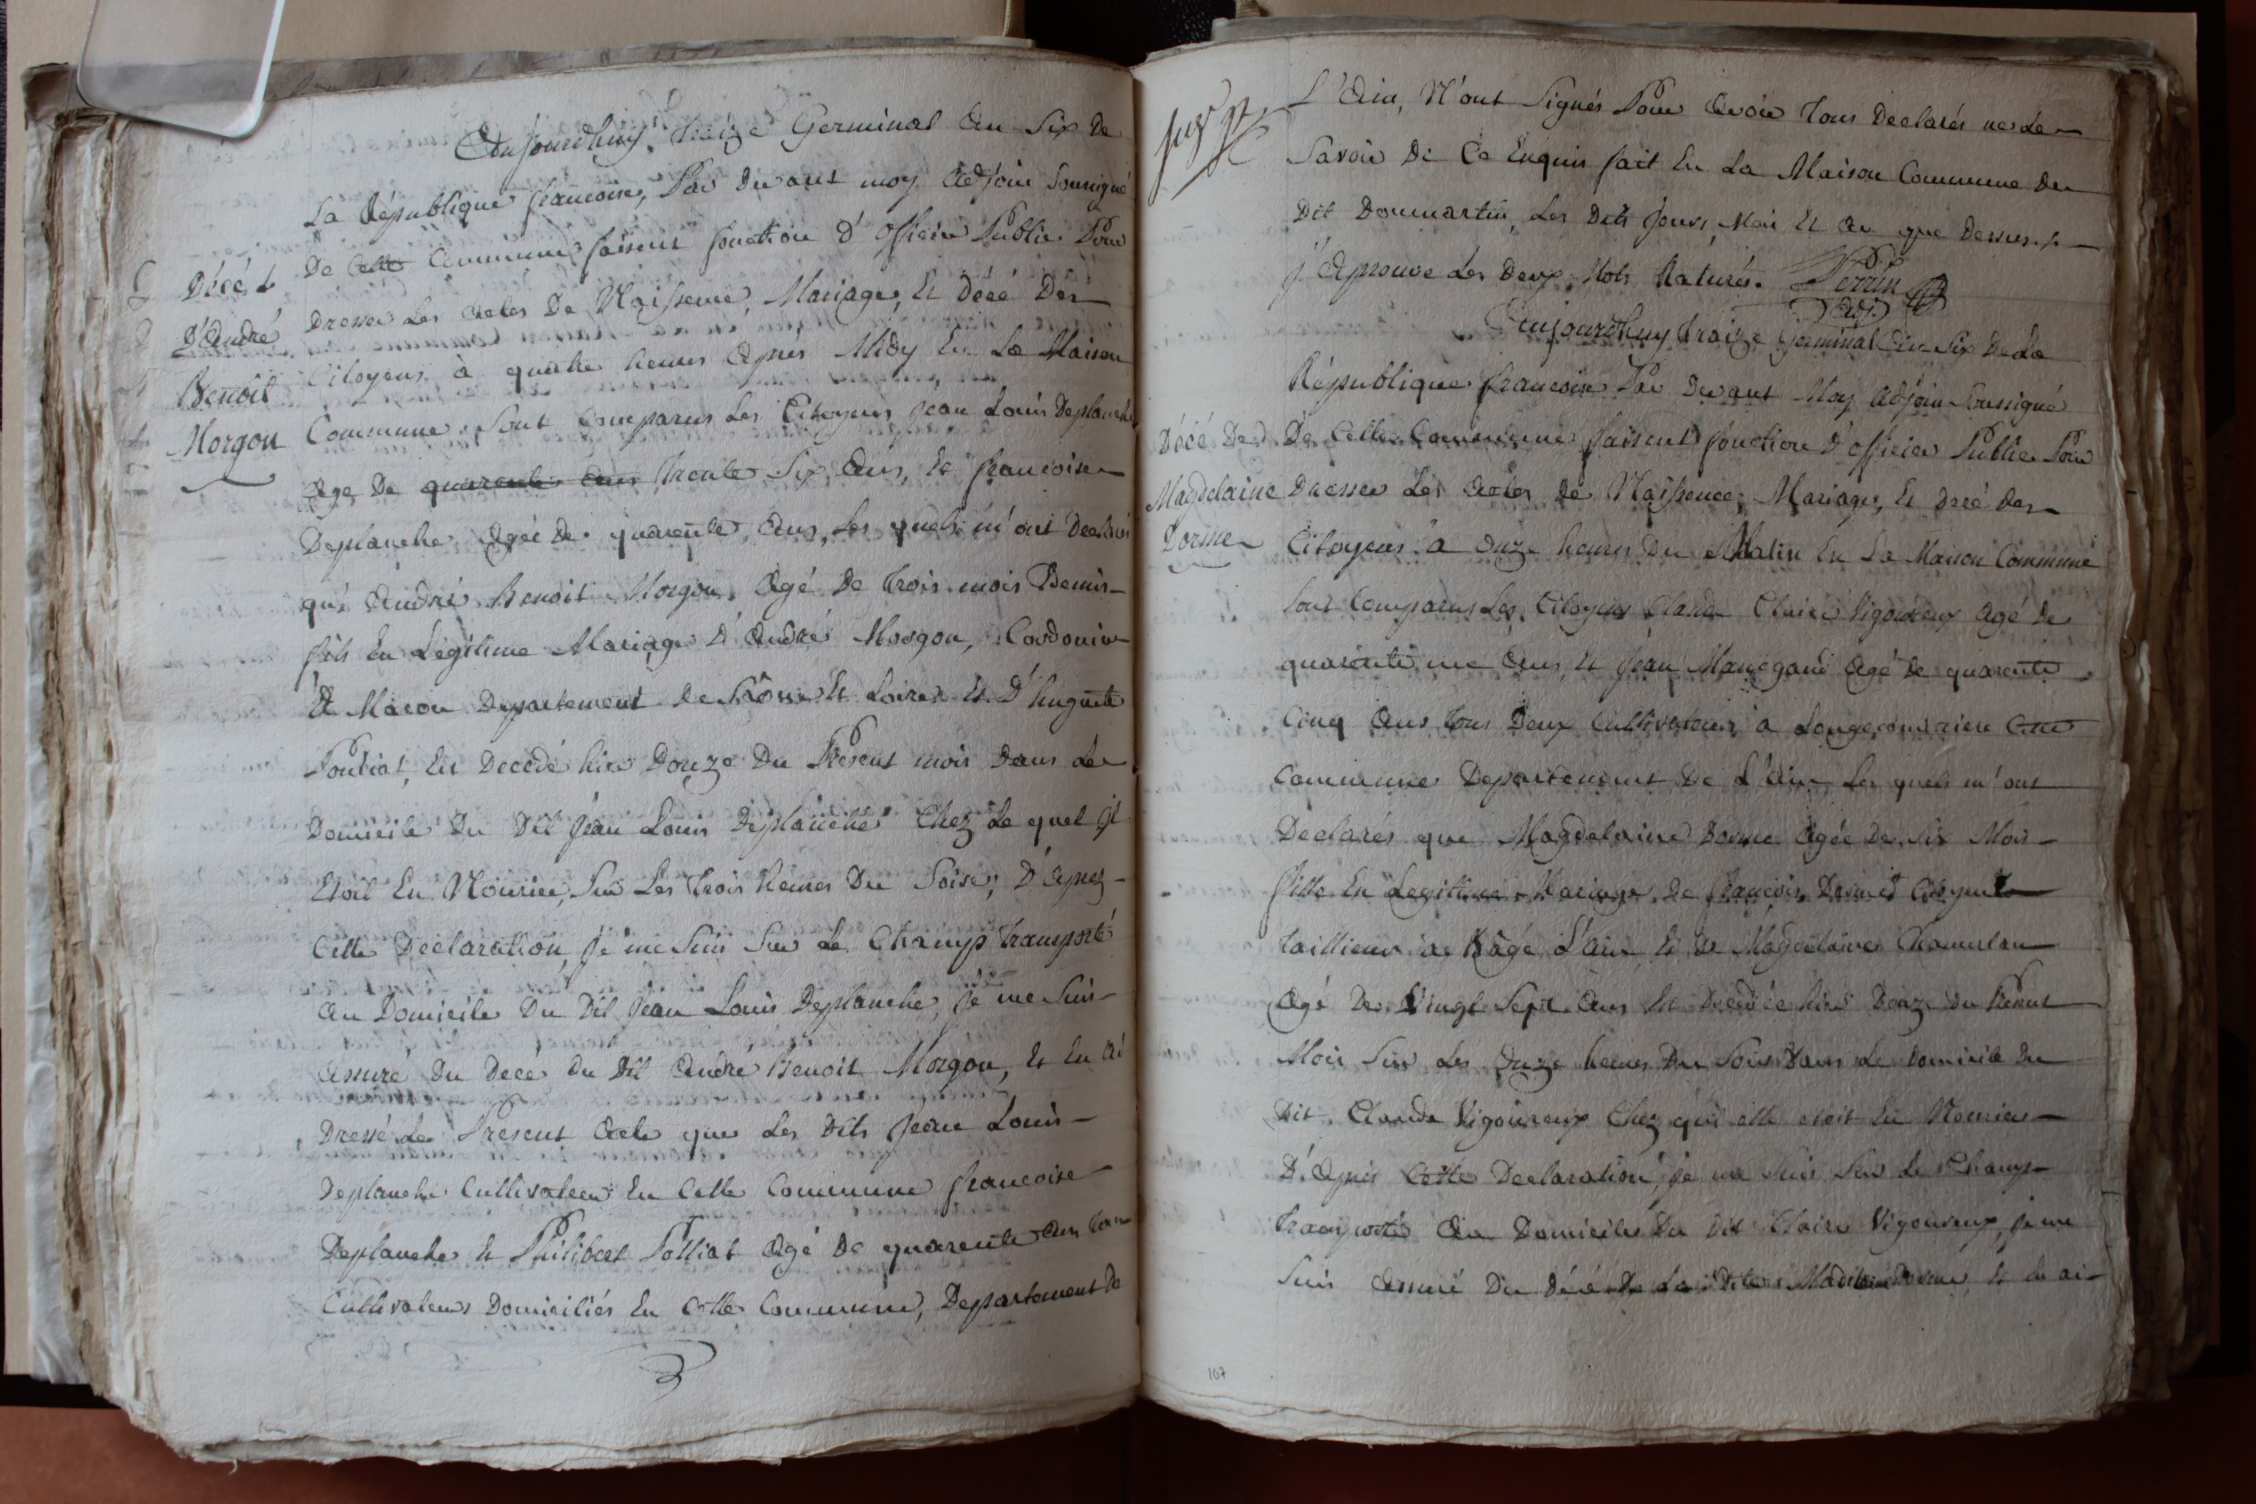 Aujourdhuy treize Germinal an Six De
La République francoise, Par devant moy adjoin Soussigné
De Cette Commune faisent fonction d'officier Public Pour
Décét
D'andré
Benoit
Morgon
Dresser Les actes De Naissence, Mariage, Et décé Des
Citoyens à quatre heures apres Midy En La Maison
Commune, Sont Comparus Les Citoyens jean Louis Deplanche
age De quarente ans trente Six ans, Et francoise
Deplanche agée de quarente ans, Les quels m'ont Declaré
qu'e andré Benoit Morgon agé De trois mois Demis
fils En Legitime Mariage D'andré Morgon, Cordonier
A Macon Departement de Saône Et Loire Et D'huguete
Est Decédé hier Douze Du Present mois Dans Le
Domicile Du Dit jean Louis Deplanche Chez Le quel jl
Etoit En Nourice, Sur Les trois heures Du Soire, D'apres
Cette Declaration, je me Suis Sur Le Champ transporté
au Domicile Du Dit jean Louis Deplanche, je me Suis
assuré Du Decé du Dit andré Benoit Morgon, Et En ai
Dressé Le Present acte que Les Dits jean Louis
Deplanche Cultivateur En Cette Commune francoise
Deplanche Et Philibert Polliat agé De quarente ans tous
Cultivateurs Domiciliés En Cette Commune, Departement De
L'Ain, N'ont Signés Pour avoir tous Declarés ne Le
Savoir De Ce Enquis fait En La Maison Commune Du
Dit Dommartin Les Dits jours, Mois Et an que Dessus
j'aprouve Les Deux Mots Raturés. Perrin
adj.
Aujourdhuy treize germinal an Six De La
République francoise Par Devant Moy adjoin Soussigné
Décé De
Magdelaine
Dorme
De Cette Commune faisent fonction D'officier Public Pour
Dresser Les actes de Naissence, Mariage, Et decé des
Citoyens à onze heures Du Matin En La Maison Commune
Sont Comparus Les Citoyens Claude Claire Vigoureux agé De
quarente une ans Et jean Manegand agé De quarente
Cinq ans tous Deux Cultivateurs a Longecomiere Cette
Commune Departement De L'ain Les quels m'ont
Declarés que Magdelaine Dorme agée De Six Mois
fille En Legitime Mariage De francois Citoyen
taillieur a Bâgé L'ain Et De Magdelaine
agé De Vingt Sept ans Est Decédée hier Douze Du Present
Mois Sur Les onze heures Du Soire Dans Le Domicile Du
Dit Claude Vigoureux Chez qui elle etoit En Nourice
D'apres Cette Declaration, je me Suis Sur Le Champ
transporté au Domicile Du Dit Claire Vigoureux, je me
Suis assuré Du Décé De La Dite Madelaine Dorme Et En ai
107